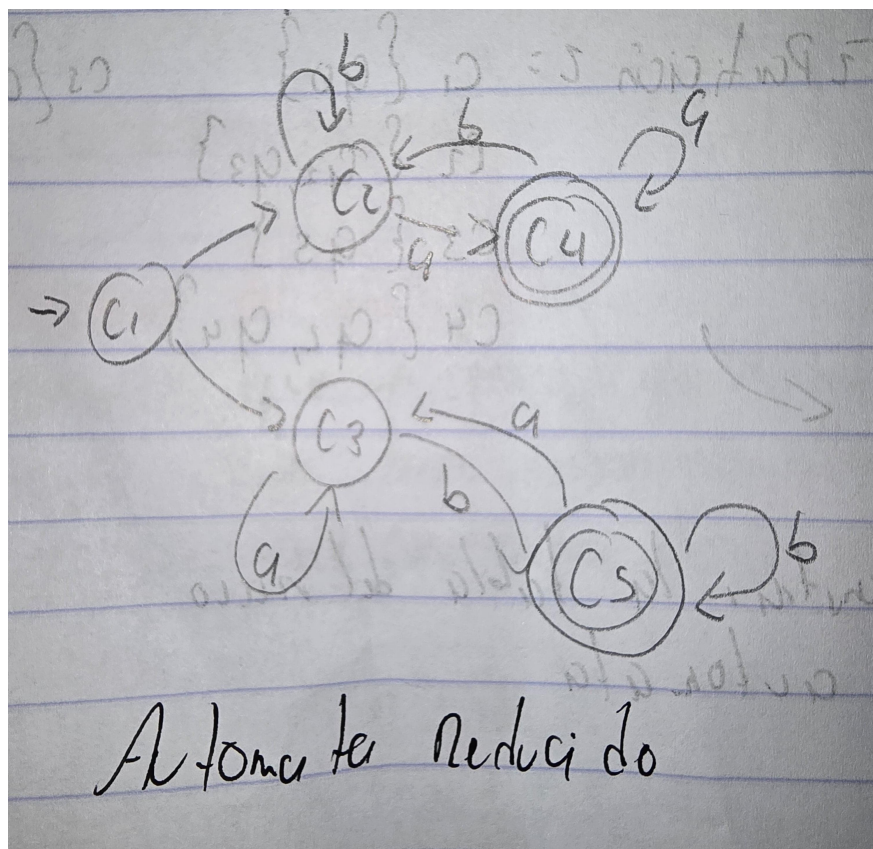 b
b
a
C2
C4
a
C1
C3
a
b
a
C5
b
Automata Reducido